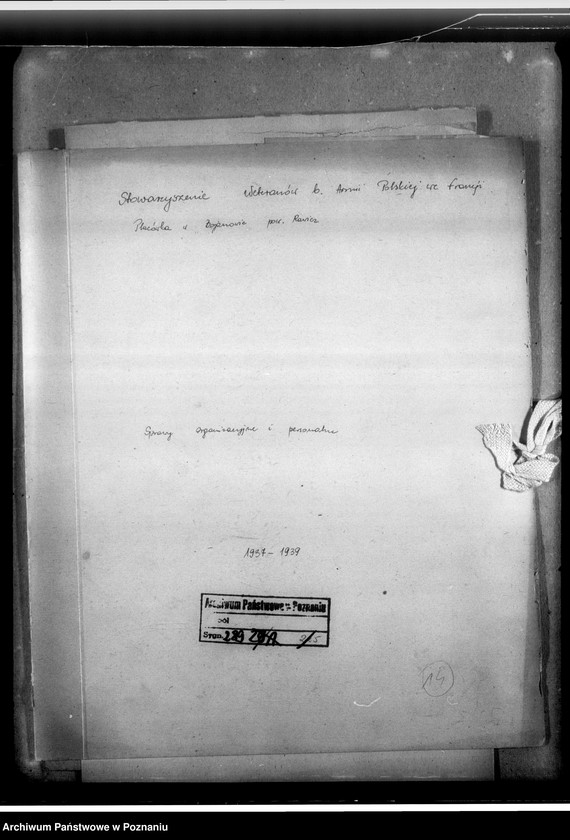 Stowarzyszenie Weteranów b. Armii Polskiej we Francji
Placówka w Bojanowie pow. Rawicz
Sprawy organizacyjne i personalne
1937-1939
Archiwum Państwowe w Poznaniu
Sygn. 289
14
Archiwum Państwowe w Poznaniu